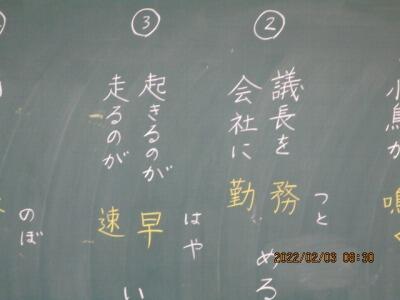 小鳥が
鳴く
②
議長を
務
つと
会社に
勤
める
③
起きるのが
早
はや
走るのが
速
い
のぼ
2022/02/03 08:30